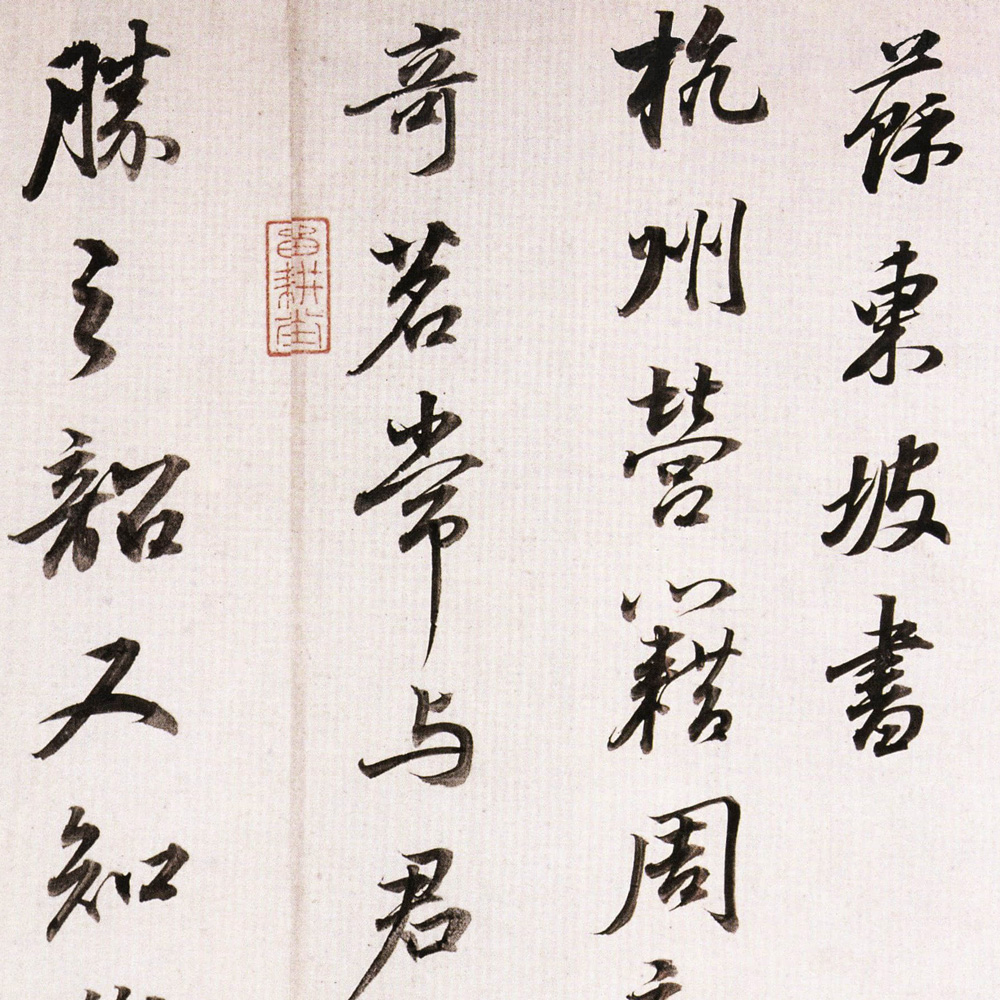 蘇東坡書
杭州營籍周
奇茗常与君
勝之韶又知